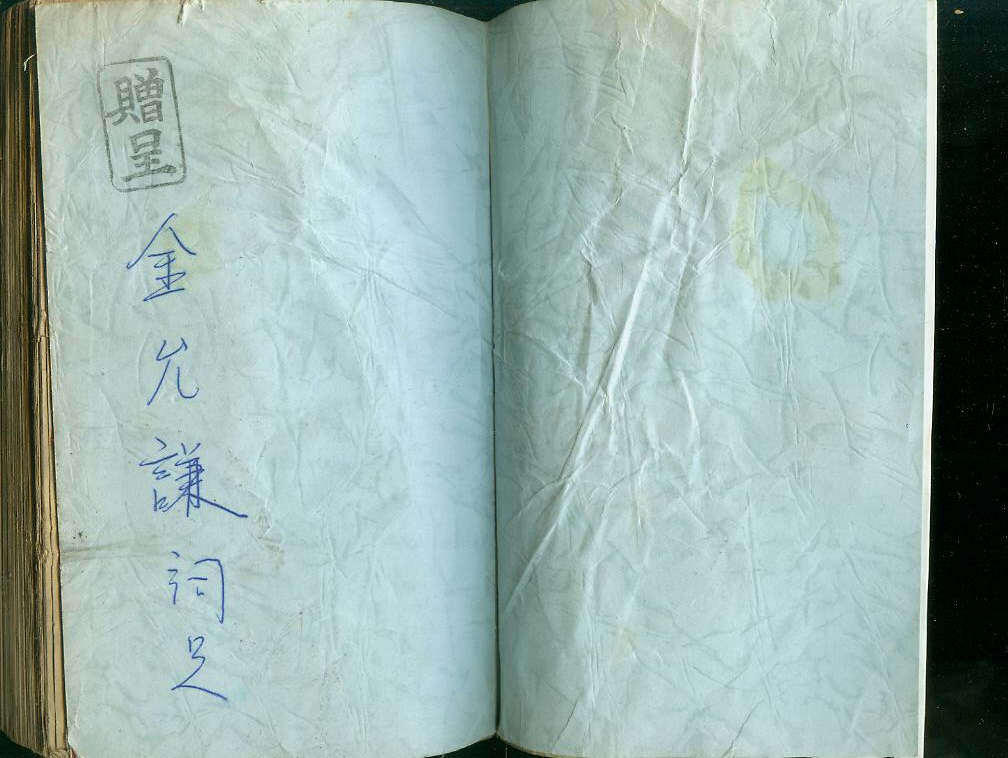 贈呈
金允謙詞兄